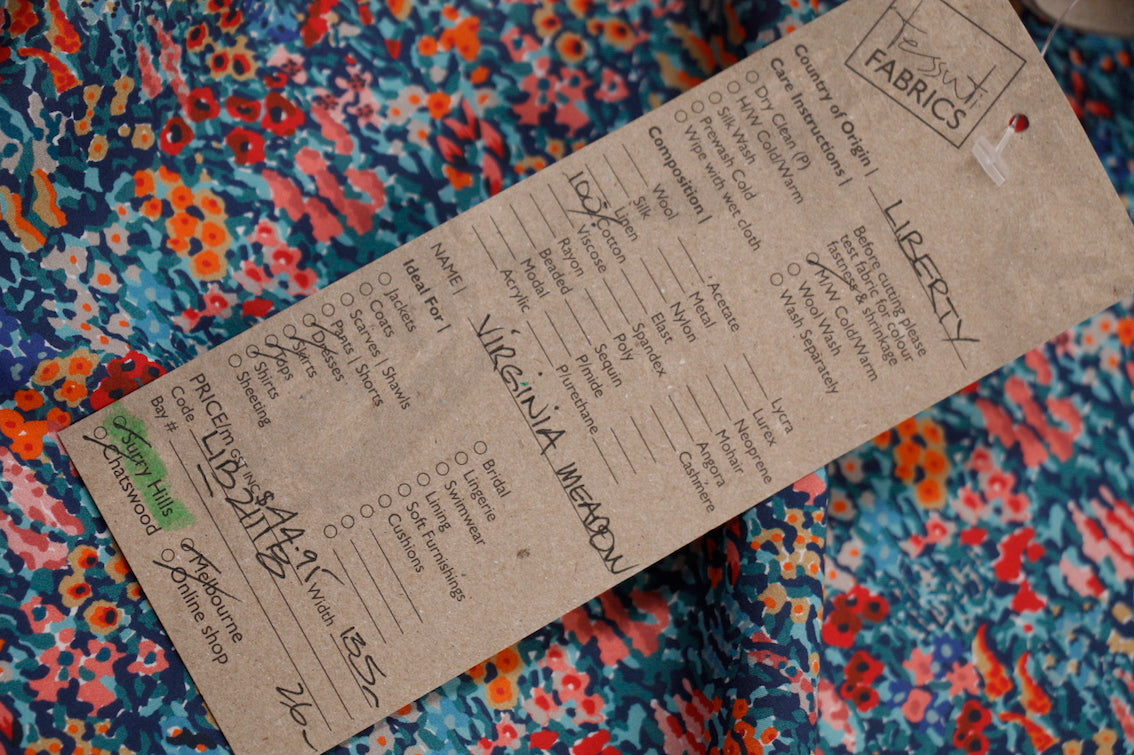 Tessuti
FABRICS
Country of Origin | LIBERTY
Care Instructions |
Dry Clean (P)
H/W Cold/Warm
Silk Wash
Prewash Cold
Wipe with wet cloth
Before cutting please
test fabric for colour
fastness & shrinkage
M/W Cold/Warm
Wool Wash
Wash Separately
Composition |
Wool
Silk
Linen
100% Cotton
Viscose
Rayon
Beaded
Modal
Acrylic
Acetate
Metal
Nylon
Elast
Spandex
Poly
Sequin
P/mide
P/urethane
Lycra
Lurex
Neoprene
Mohair
Angora
Cashmere
NAME | VIRGINIA MEADOW
Ideal For |
Jackets
Coats
Scarves | Shawls
Pants | Shorts
Dresses
Skirts
Tops
Shirts
Sheeting
Bridal
Lingerie
Swimwear
Lining
Soft Furnishings
Cushions
PRICE/m GST INC $44.95 Width 135
Code LIB211TB
Bay # 26
Surry Hills
Chatswood
Melbourne
Online shop